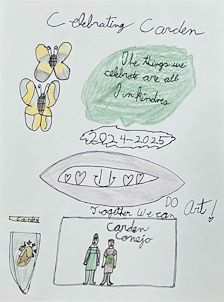 Celebrating Carden
The things we
celebrate are all
2024-2025
DO
Together We can Art!
Carden
Conejo